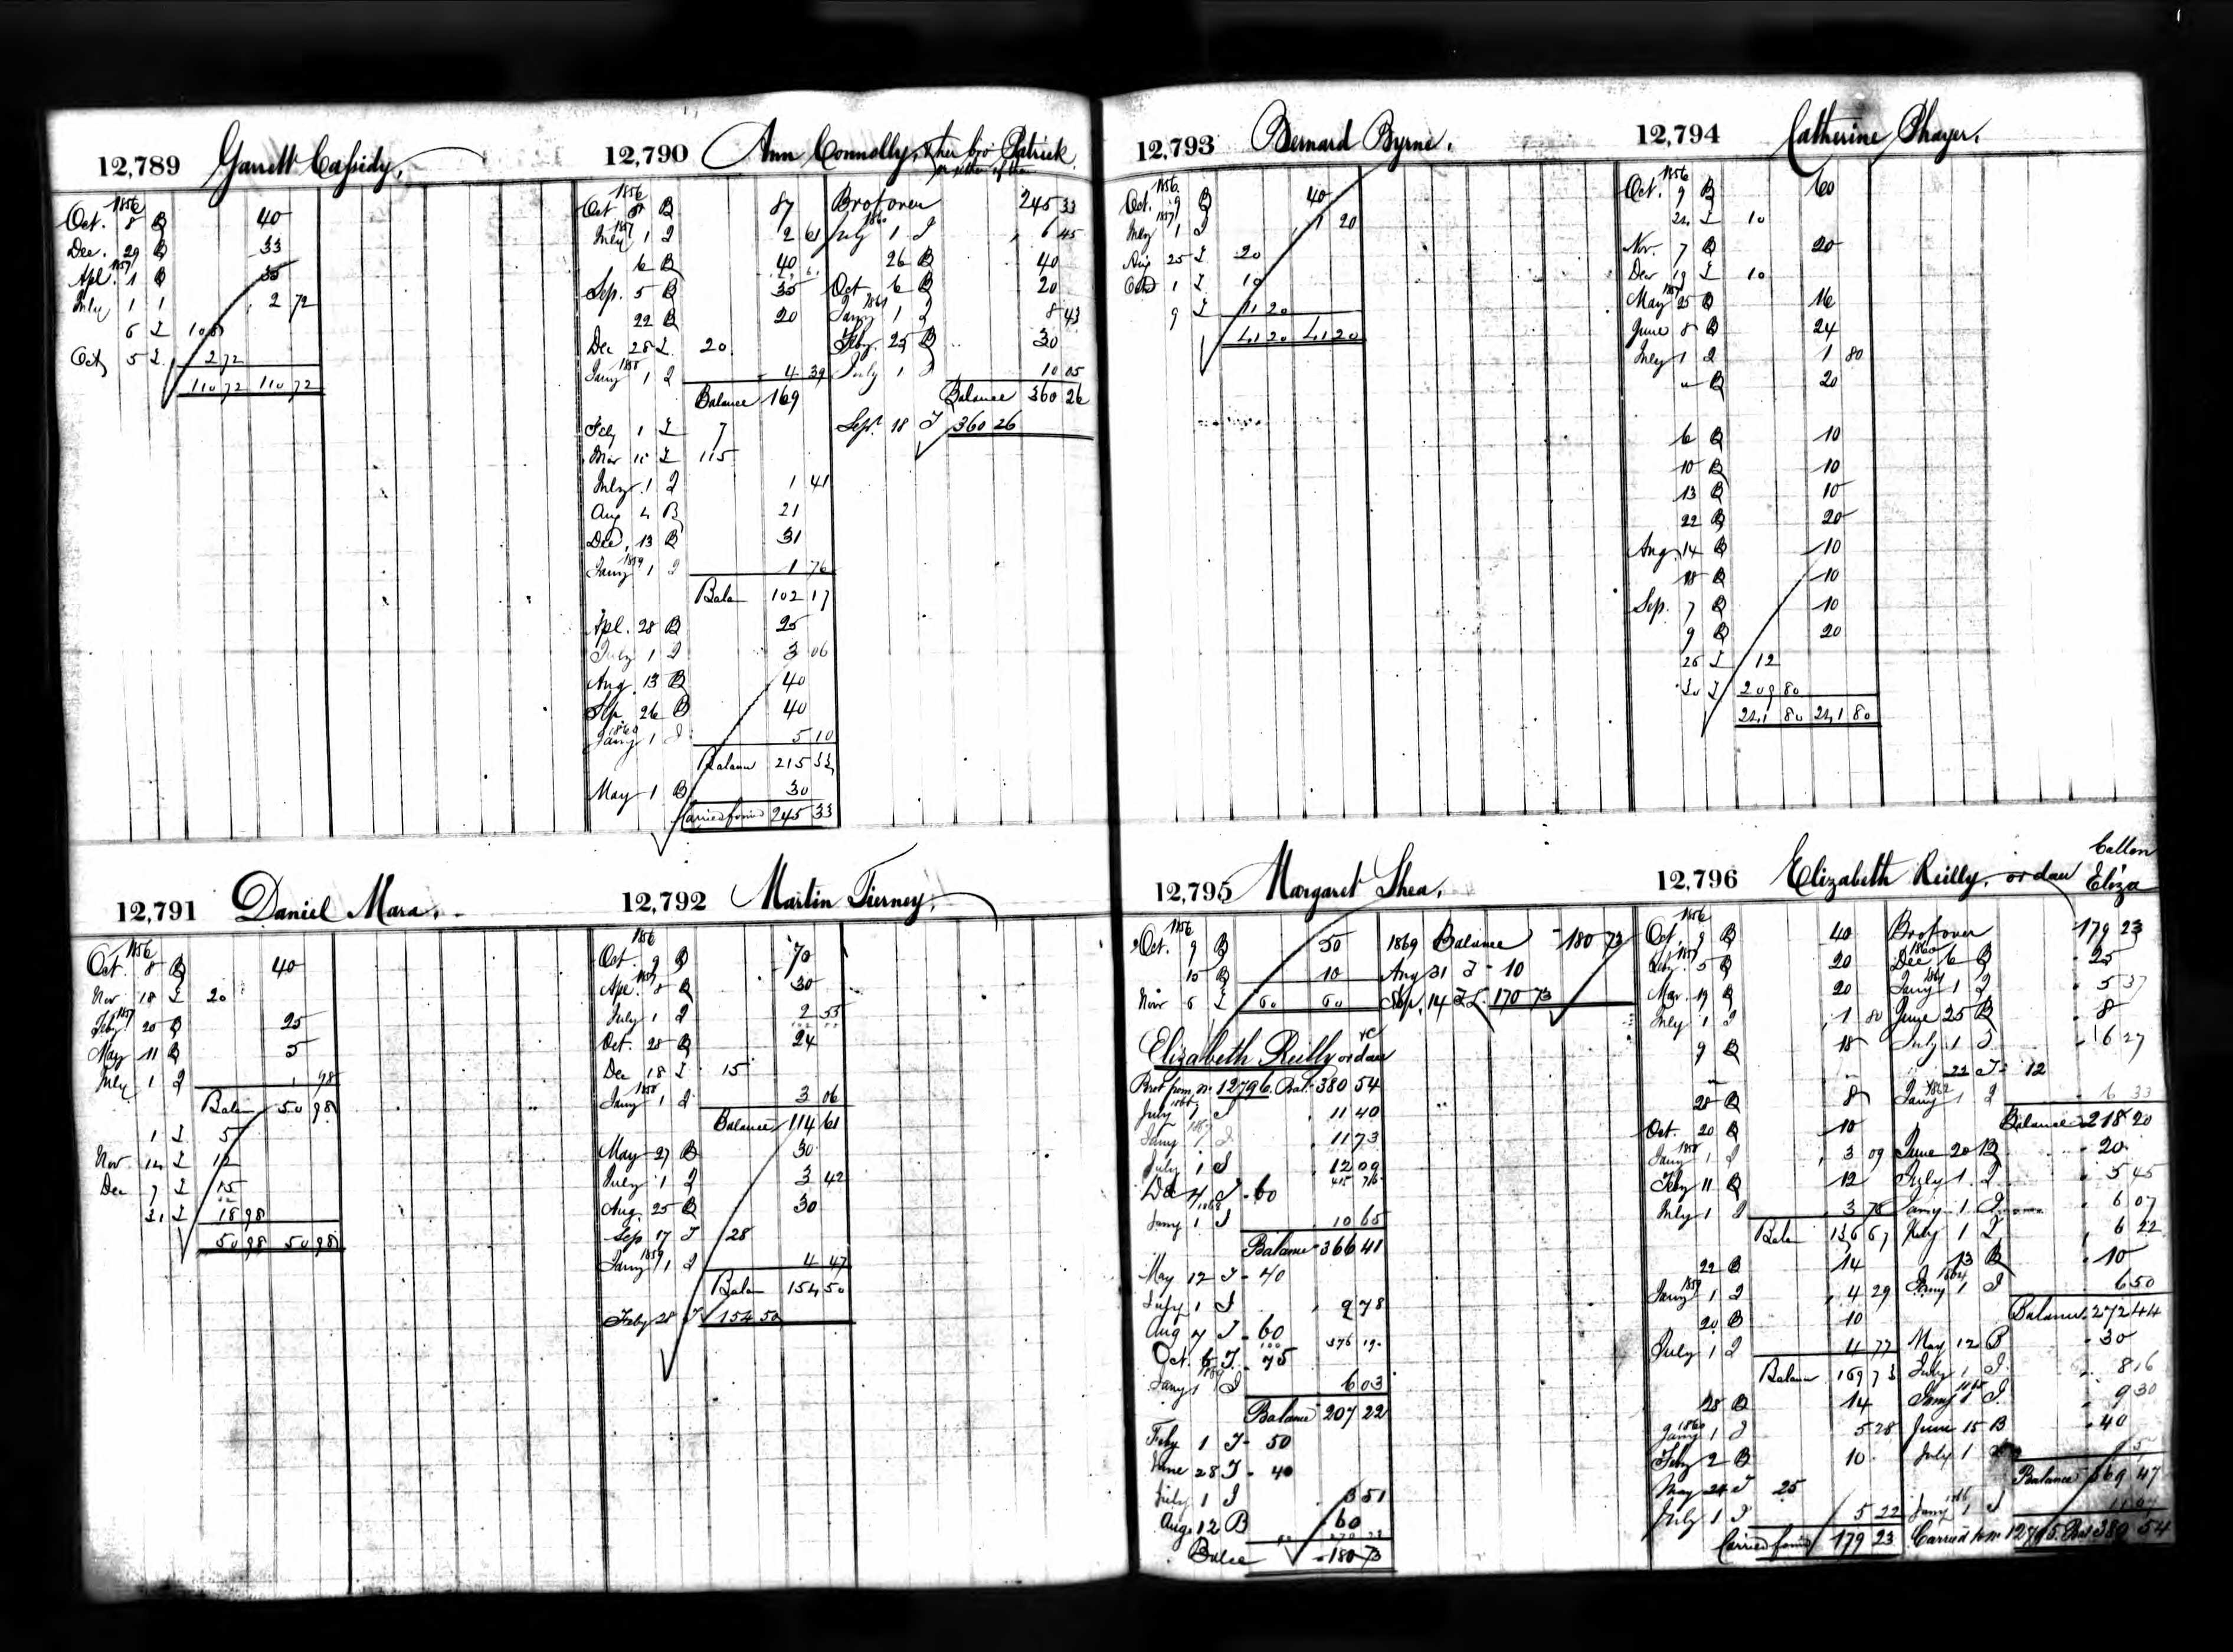 12,789 Garrett Cassidy.
1856
Oct. 8 B 40
Dec. 29 B 33
1857
Apl. 1 B 35
July 1 I 2 72
6 I 108
Oct 5 I 2 72
110 72 110 72
12,790 Ann Connolly, & her bro Patrick
or either of them
1856
Oct 8 B 87
1857
July 1 I 2 61
6 B 40
Sep. 5 B 35
22 B 20
Dec 28 I 20
1858
Jany 1 I 4 39
Balance 169
Feby 1 I 7
Mar 15 I 115
July 1 I 1 41
Aug 4 B 21
Dec. 13 B 31
1859
Jany 1 I 1 76
Balan 102 17
Apl. 28 B 25
July 1 I 3 06
Aug. 13 B 40
Sep. 26 B 40
1860
Jany 1 I 5 10
Balance 215 33
May 1 B 30
Carried forwd 245 33
Bro fover 245 33
1860
July 1 I 6 45
26 B 40
Oct 6 B 20
1861
Jany 1 I 8 43
Feby. 25 B 30
July 1 I 10 05
Balance 360 26
Sept. 18 I 360 26
12,791 Daniel Mara.
1856
Oct. 8 B 40
Nov 18 I 20
1857
Feby 20 B 25
May 11 B 5
July 1 I 1 98
Balan 50 98
1 I 5
Nov. 14 I 12
Dec 7 I 15
31 I 18 98
50 98 50 98
12,792 Martin Tierney.
1856
Oct. 9 B 70
1857
Apl. 8 B 30
July 1 I 2 55
Oct. 28 B 24
Dec 18 I 15
1858
Jany 1 I 3 06
Balance 114 61
May 27 B 30
July 1 I 3 42
Aug. 25 B 30
Sep 17 I 28
1859
Jany 1 I 4 47
Balan 154 50
Feby 28 I 154 50
12,793 Bernard Byrne.
1856
Oct. 9 B 40
1857
July 1 I 1 20
Aug 25 I 20
Oct 1 I 10
9 I 11 20
41 20 41 20
12,794 Catherine Thayer.
1856
Oct. 9 B 60
24 I 10
Nov. 7 B 20
Dec 19 I 10
1857
May 25 B 16
June 8 B 24
July 1 I 1 80
" B 20
6 B 10
10 B 10
13 B 10
22 B 20
Aug. 14 B 10
18 B 10
Sep. 7 B 10
9 B 20
26 I 12
30 I 209 80
241 80 241 80
12,795 Margaret Shea.
1856
Oct. 9 B 50
15 B 10
Nov 6 I 60 60
Elizabeth Reilly or dau &c
Brot from No 12796. Bal. 380 54
1866
July 1 I 11 40
1867
Jany 1 I 11 73
July 1 I 12 09
415 76
Dec 4 I 60
1868
Jany 1 I 10 65
Balance 366 41
May 12 I 40
July 1 I 9 78
Aug 4 I 60
376 19
Oct. 6 I 75
1869
Jany 1 I 6 03
Balance 207 22
Feby 1 I 50
June 28 I 40
July 1 I 3 51
Aug. 12 B 60
Balce 180 73
1869 Balance 180 73
Aug 31 I 10
Sep. 14 I 170 73
12,796 Elizabeth Reilly, or dau Eliza
Callon
1856
Oct. 9 B 40
1857
Feby. 5 B 20
Mar. 19 B 20
July 1 I 1 80
9 B 18
28 B 8
Oct. 20 B 10
1858
Jany 1 I 3 09
Feby 11 B 12
July 1 I 3 78
Balan 136 67
22 B 14
1859
Jany 1 I 4 29
20 B 10
July 1 I 4 77
Balan 169 73
28 B 14
1860
Jany 1 I 5 28
Feby 2 B 10
May 24 I 25
July 1 I 5 22
Carried forwd 179 23
Bro fover 179 23
1860
Dec 6 B 25
1861
Jany 1 I 5 37
June 25 B 8
July 1 I 6 27
22 I 12
1862
Jany 1 I 6 33
Balance 218 20
June 20 B 20
July 1 I 5 45
Jany 1 I 6 07
July 1 I 6 22
13 B 10
1864
Jany 1 I 6 50
Balance 272 44
May 12 B 30
July 1 I 8 16
1865
Jany 1 I 9 30
June 15 B 40
July 1
Balance 369 47
1866
Jany 1 I 11 07
Carried to No 12795. Bal 380 54